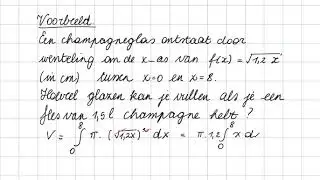 Voorbeeld
Een champagneglas ontstaat door
wenteling om de x-as van f(x) = √1,2 x
(in cm) tussen x=0 en x=8.
Hoeveel glazen kan je vullen als je een
fles van 1,5 l champagne hebt ?
V = ∫₀⁸ π · (√1,2x)² dx = π · 1,2 ∫₀⁸ x d